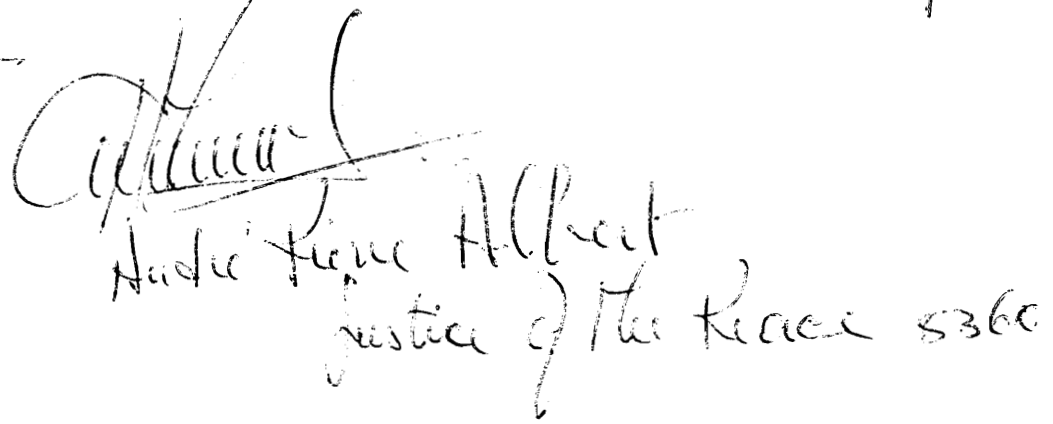 André Pierre Albert
Justice of The Peace 5360